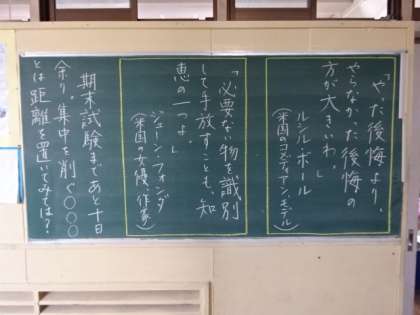 「やった後悔より、
やらなかった後悔の
方が大きいわ。」
ルシル・ボール
(米国のコメディアン、モデル)
「必要ない物を識別
して手放すことも、知
恵の一つよ。」
ジェーン・フォンダ
(米国の女優、作家)
期末試験まであと十日
余り。集中を削ぐ〇〇〇
とは距離を置いてみては?